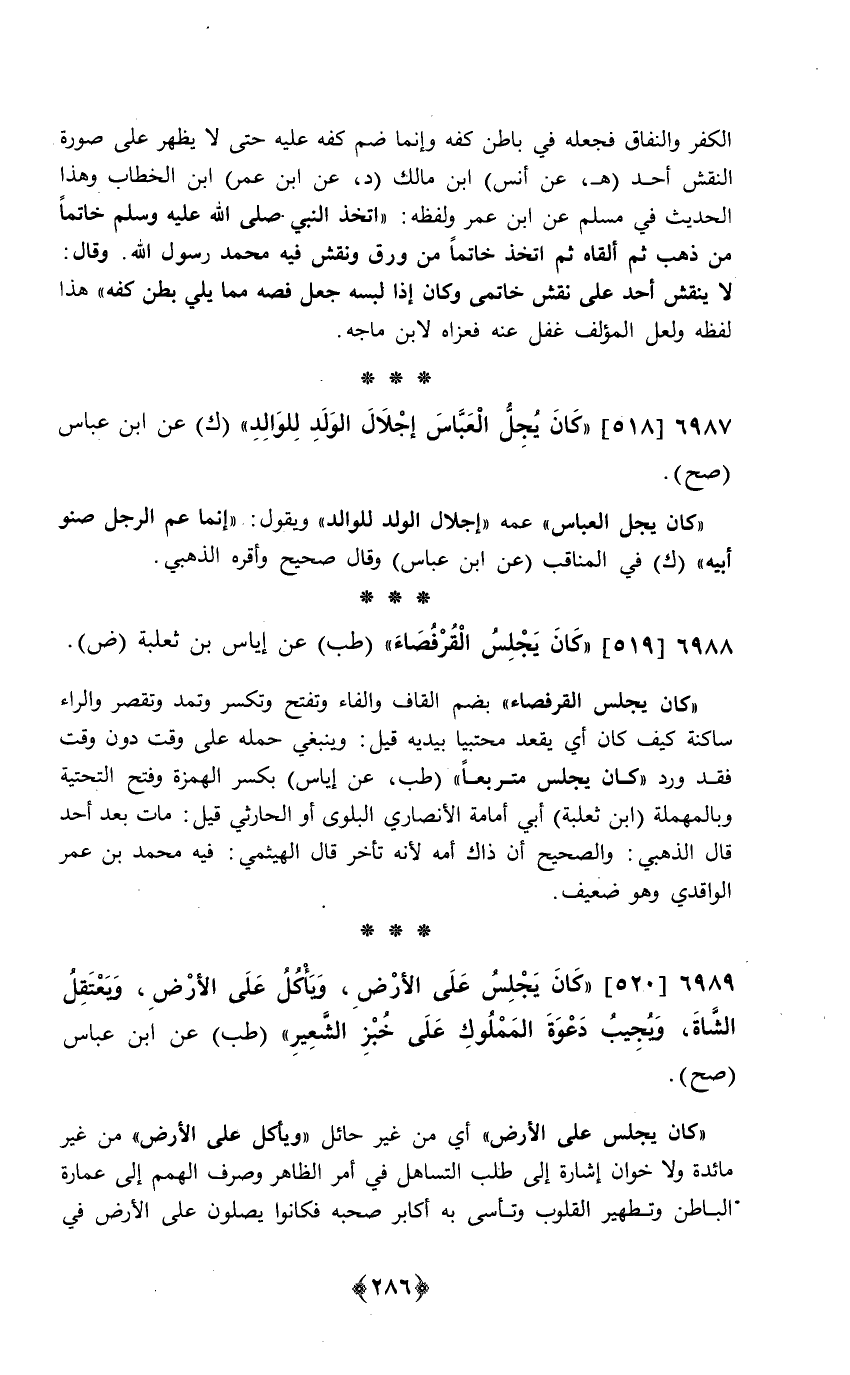 الكفر والنفاق فجعله في باطن كفه وإنما ضم كفه عليه حتى لا يظهر على صورة
النقش أحـد (هـ، عن أنس) ابن مالك (د، عن ابن عمر) ابن الخطاب وهذا
الحديث في مسلم عن ابن عمر ولفظه: «اتخذ النبي صلى الله عليه وسلم خاتماً
من ذهب ثم ألقاه ثم اتخذ خاتماً من ورق ونقش فيه محمد رسول الله. وقال:
لا ينقش أحد على نقش خاتمى وكان إذا لبسه جعل فصه مما يلي بطن كفه» هذا
لفظه ولعل المؤلف غفل عنه فعزاه لابن ماجه.
* * *
٦٩٨٧ [٥١٨] «كَانَ يُجِلُّ الْعَبَّاسَ إجْلَالَ الوَلَدِ لِلوَالِدِ» (ك) عن ابن عباس
(صح).
«كان يجل العباس» عمه «إجلال الولد للوالد» ويقول: «إنما عم الرجل صنو
أبيه» (ك) في المناقب (عن ابن عباس) وقال صحيح وأقره الذهبي.
* * *
٦٩٨٨ [٥١٩] «كَانَ يَجْلِسُ الْقُرْفُصَاءَ» (طب) عن إياس بن ثعلبة (ض).
«كان يجلس القرفصاء» بضم القاف والفاء وتفتح وتكسر وتمد وتقصر والراء
ساكنة كيف كان أي يقعد محتبيا بيديه قيل: وينبغي حمله على وقت دون وقت
فقـد ورد «كـان يجلس متـربعـاً» (طب، عن إياس) بكسر الهمزة وفتح التحتية
وبالمهملة (ابن ثعلبة) أبي أمامة الأنصاري البلوى أو الحارثي قيل: مات بعد أحد
قال الذهبي: والصحيح أن ذاك أمه لأنه تأخر قال الهيثمي: فيه محمد بن عمر
الواقدي وهو ضعيف.
* * *
٦٩٨٩ [٥٢٠] «كَانَ يَجْلِسُ عَلَى الأرْضِ، وَيَأْكُلُ عَلَى الأرْضِ، وَيَعْتَقِلُ
الشَّاةَ، وَيُجِيبُ دَعْوَةَ المَمْلُوكِ عَلَى خُبْزِ الشَّعِيرِ» (طب) عن ابن عباس
(صح).
«كان يجلس على الأرض» أي من غير حائل «ويأكل على الأرض» من غير
مائدة ولا خوان إشارة إلى طلب التساهل في أمر الظاهر وصرف الهمم إلى عمارة
البـاطن وتـطهير القلوب وتـأسى به أكابر صحبه فكانوا يصلون على الأرض في
﴿٢٨٦﴾